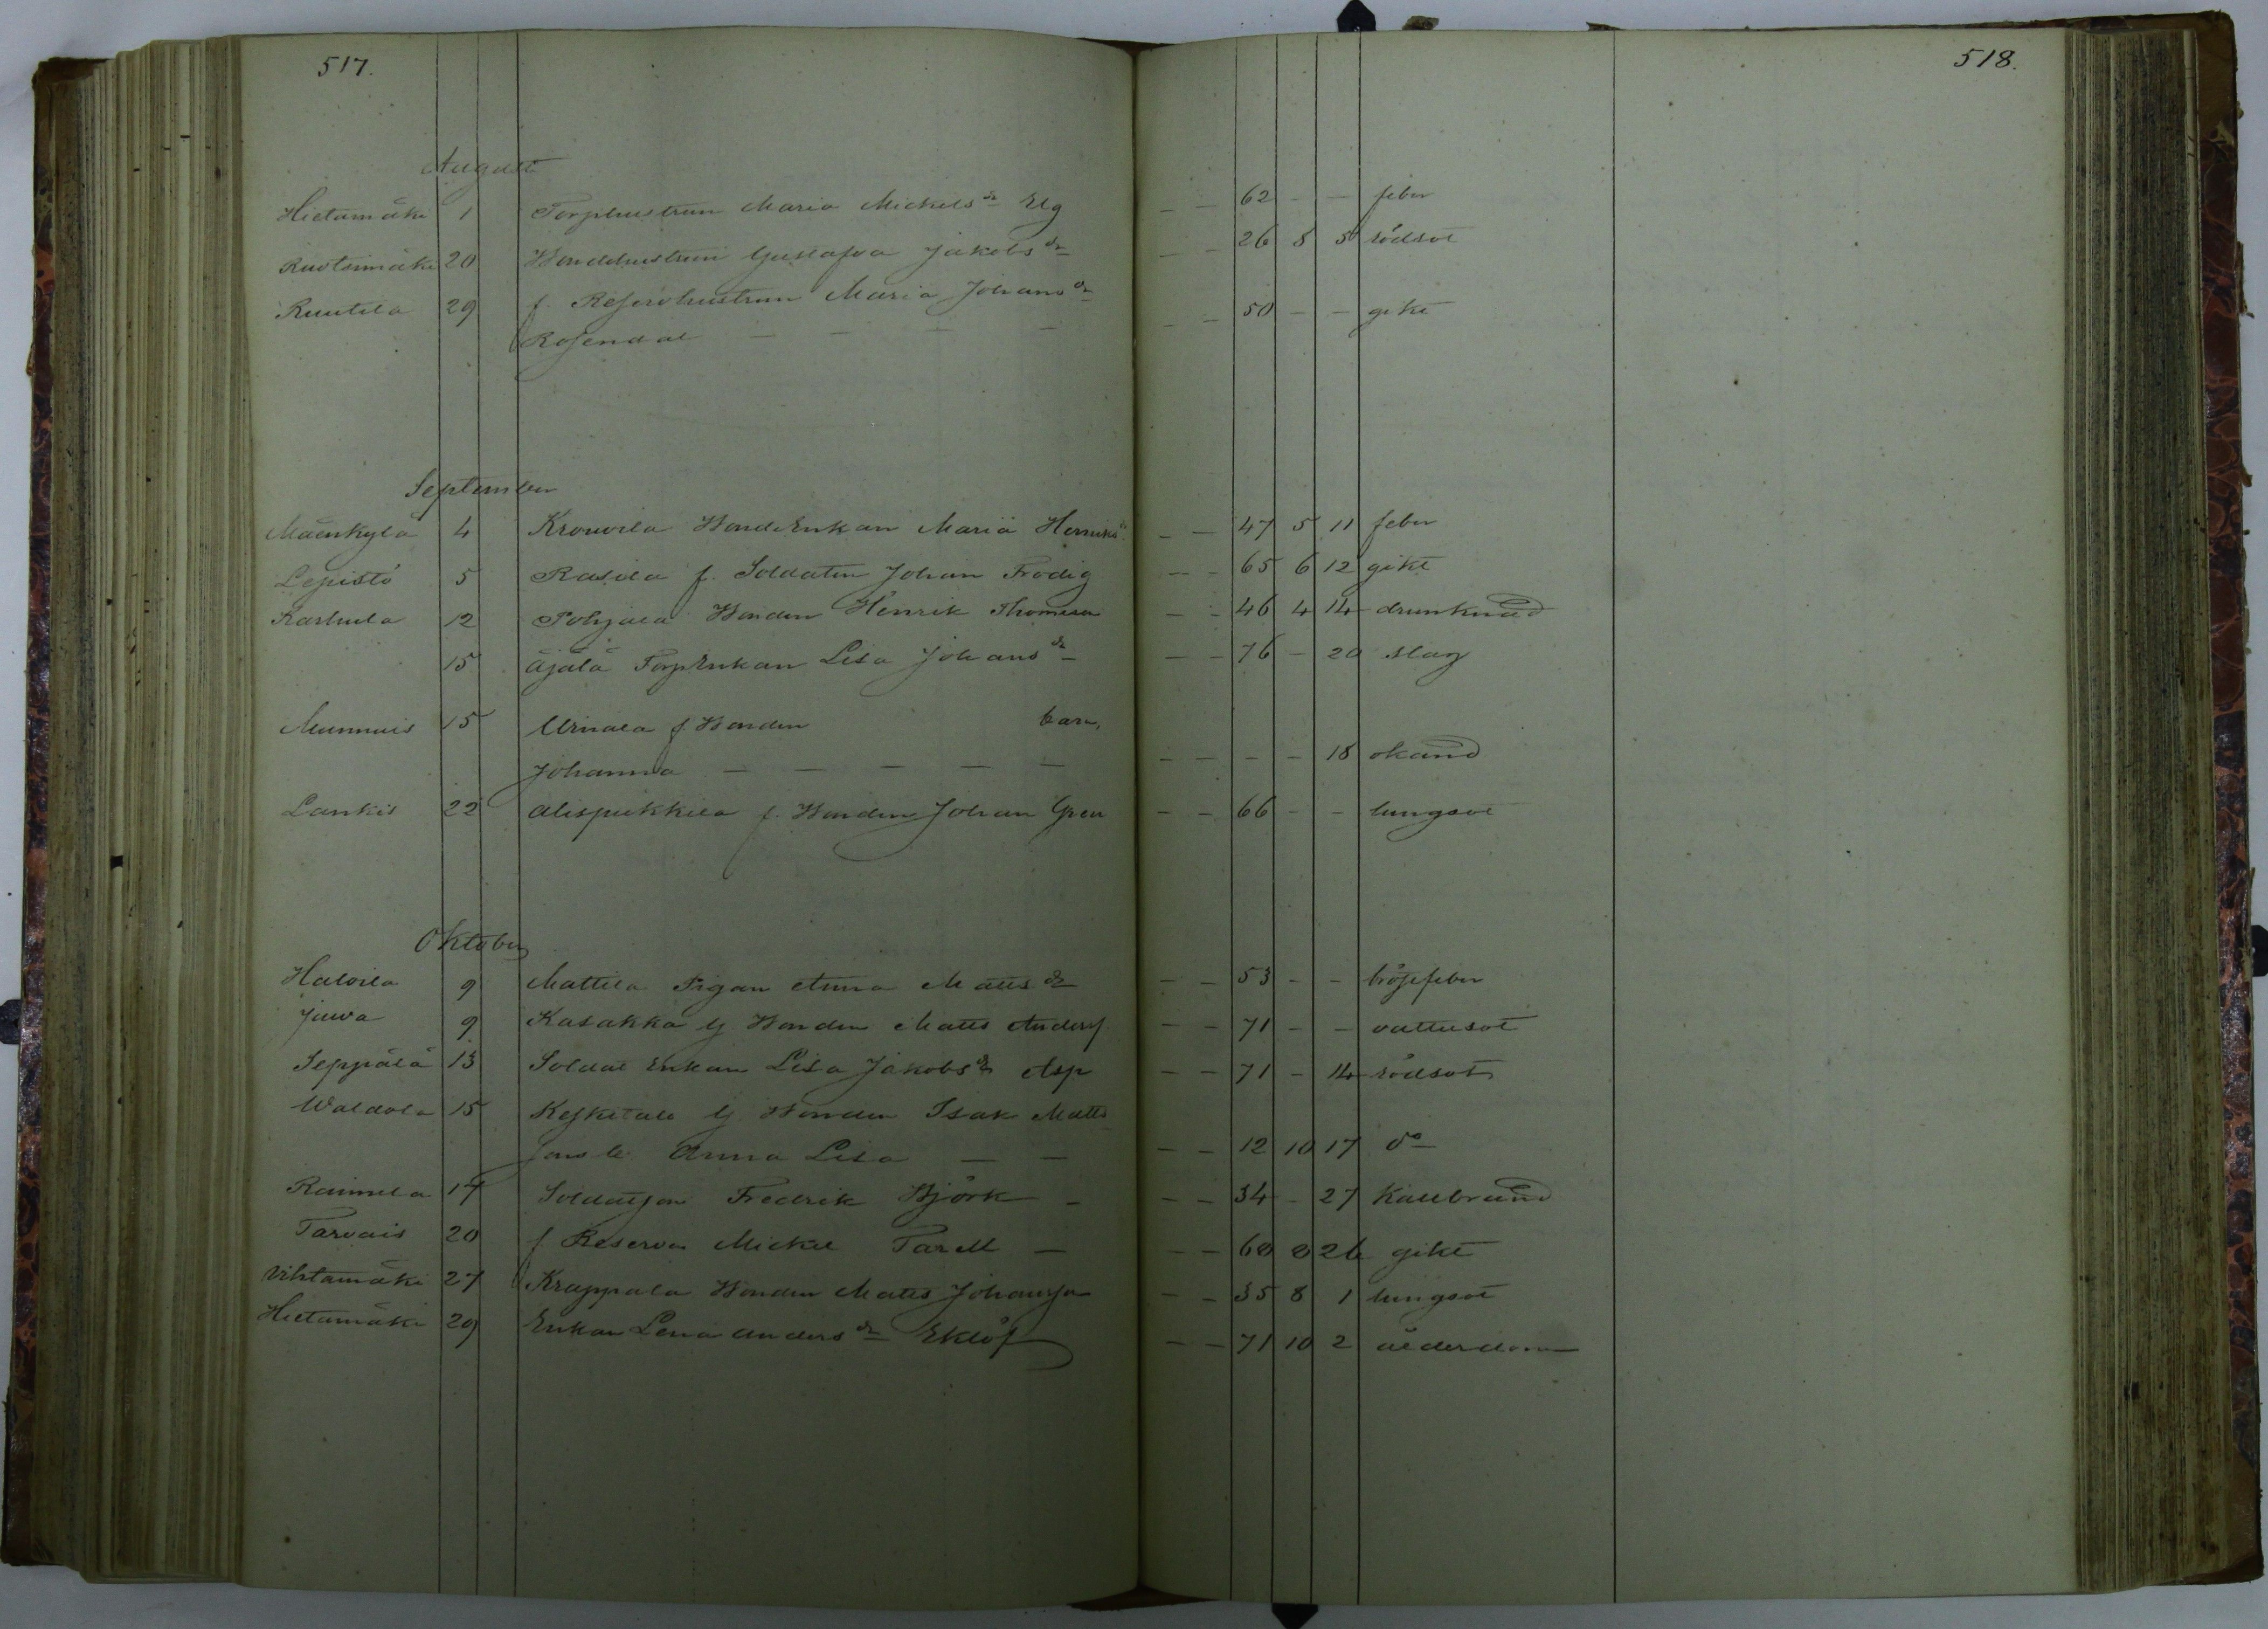 517.
518.
August
Hietamäki 1 Torphustrun Maria Mickelsdr Elg — — 62 — — feber
Ruotsinmäki 20 Bondhustrun Gustafva Jakobsdr — — 26 8 5 rödsot
Ruutila 29 f. Reservhustrun Maria Johansdr
Rosendal — — — — — — 50 — — gikt
September
Mäenkylä 4 Krouvila Bondenkan Maria Henriksdr — — 47 5 11 feber
Lepistö 5 Rasila f. Soldaten Johan Frodig — — 65 6 12 gikt
Karhula 12 Pohjala Bonden Henrik Thomasson — — 46 4 14 drunknad
15 Äjälä Torpenkan Lisa Johansdr — — 76 — 20 slag
Munnais 15 f. Bonden barn,
Johanna — — — — — — — — — 18 okänd
Lankis 22 Alispukkila f. Bonden Johan Gren — — 66 — — lungsot
Oktober
Haloila 9 Mattila Pigan Anna Mattsdr — — 53 — — feber
Juva 9 Kasakka Bonden Matts Anderss — — 71 — — vattusot
Seppälä 13 Soldat Enkan Lisa Jakobsdr Asp — — 71 — 14 rödsot
Waldola 15 Keskitalo Bonden Isak Matts
sons b. Anna Lisa — — — — 12 10 17 do
Raimela 17 Soldatson Fredrik Björk — — — 34 — 27 kallbrand
Tarvais 20 f Reserven Mickel Tarell — — — 60 8 26 gikt
Vihtamäki 27 Krappala Bonden Matts Johansson — — 35 8 1 lungsot
Hietamäki 29 Enkan Lena Andersdr Eklöf — — 71 10 2 ålderdom